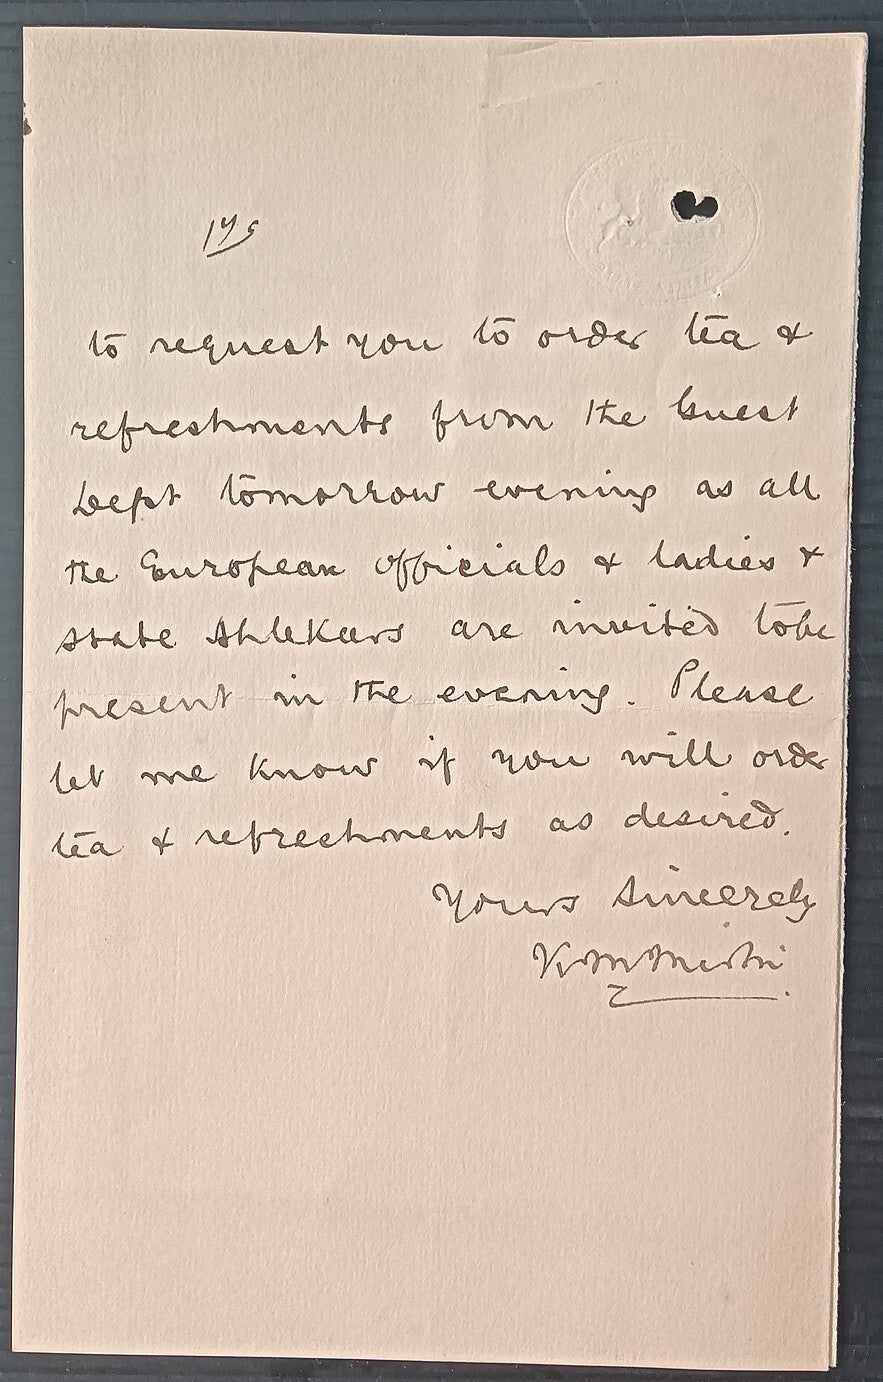 to request you to order tea &
refreshments from the Guest
Dept tomorrow evening as all
the European officials & ladies &
state Ahlekars are invited to be
present in the evening. Please
let me know if you will order
tea & refreshments as desired.
Yours Sincerely